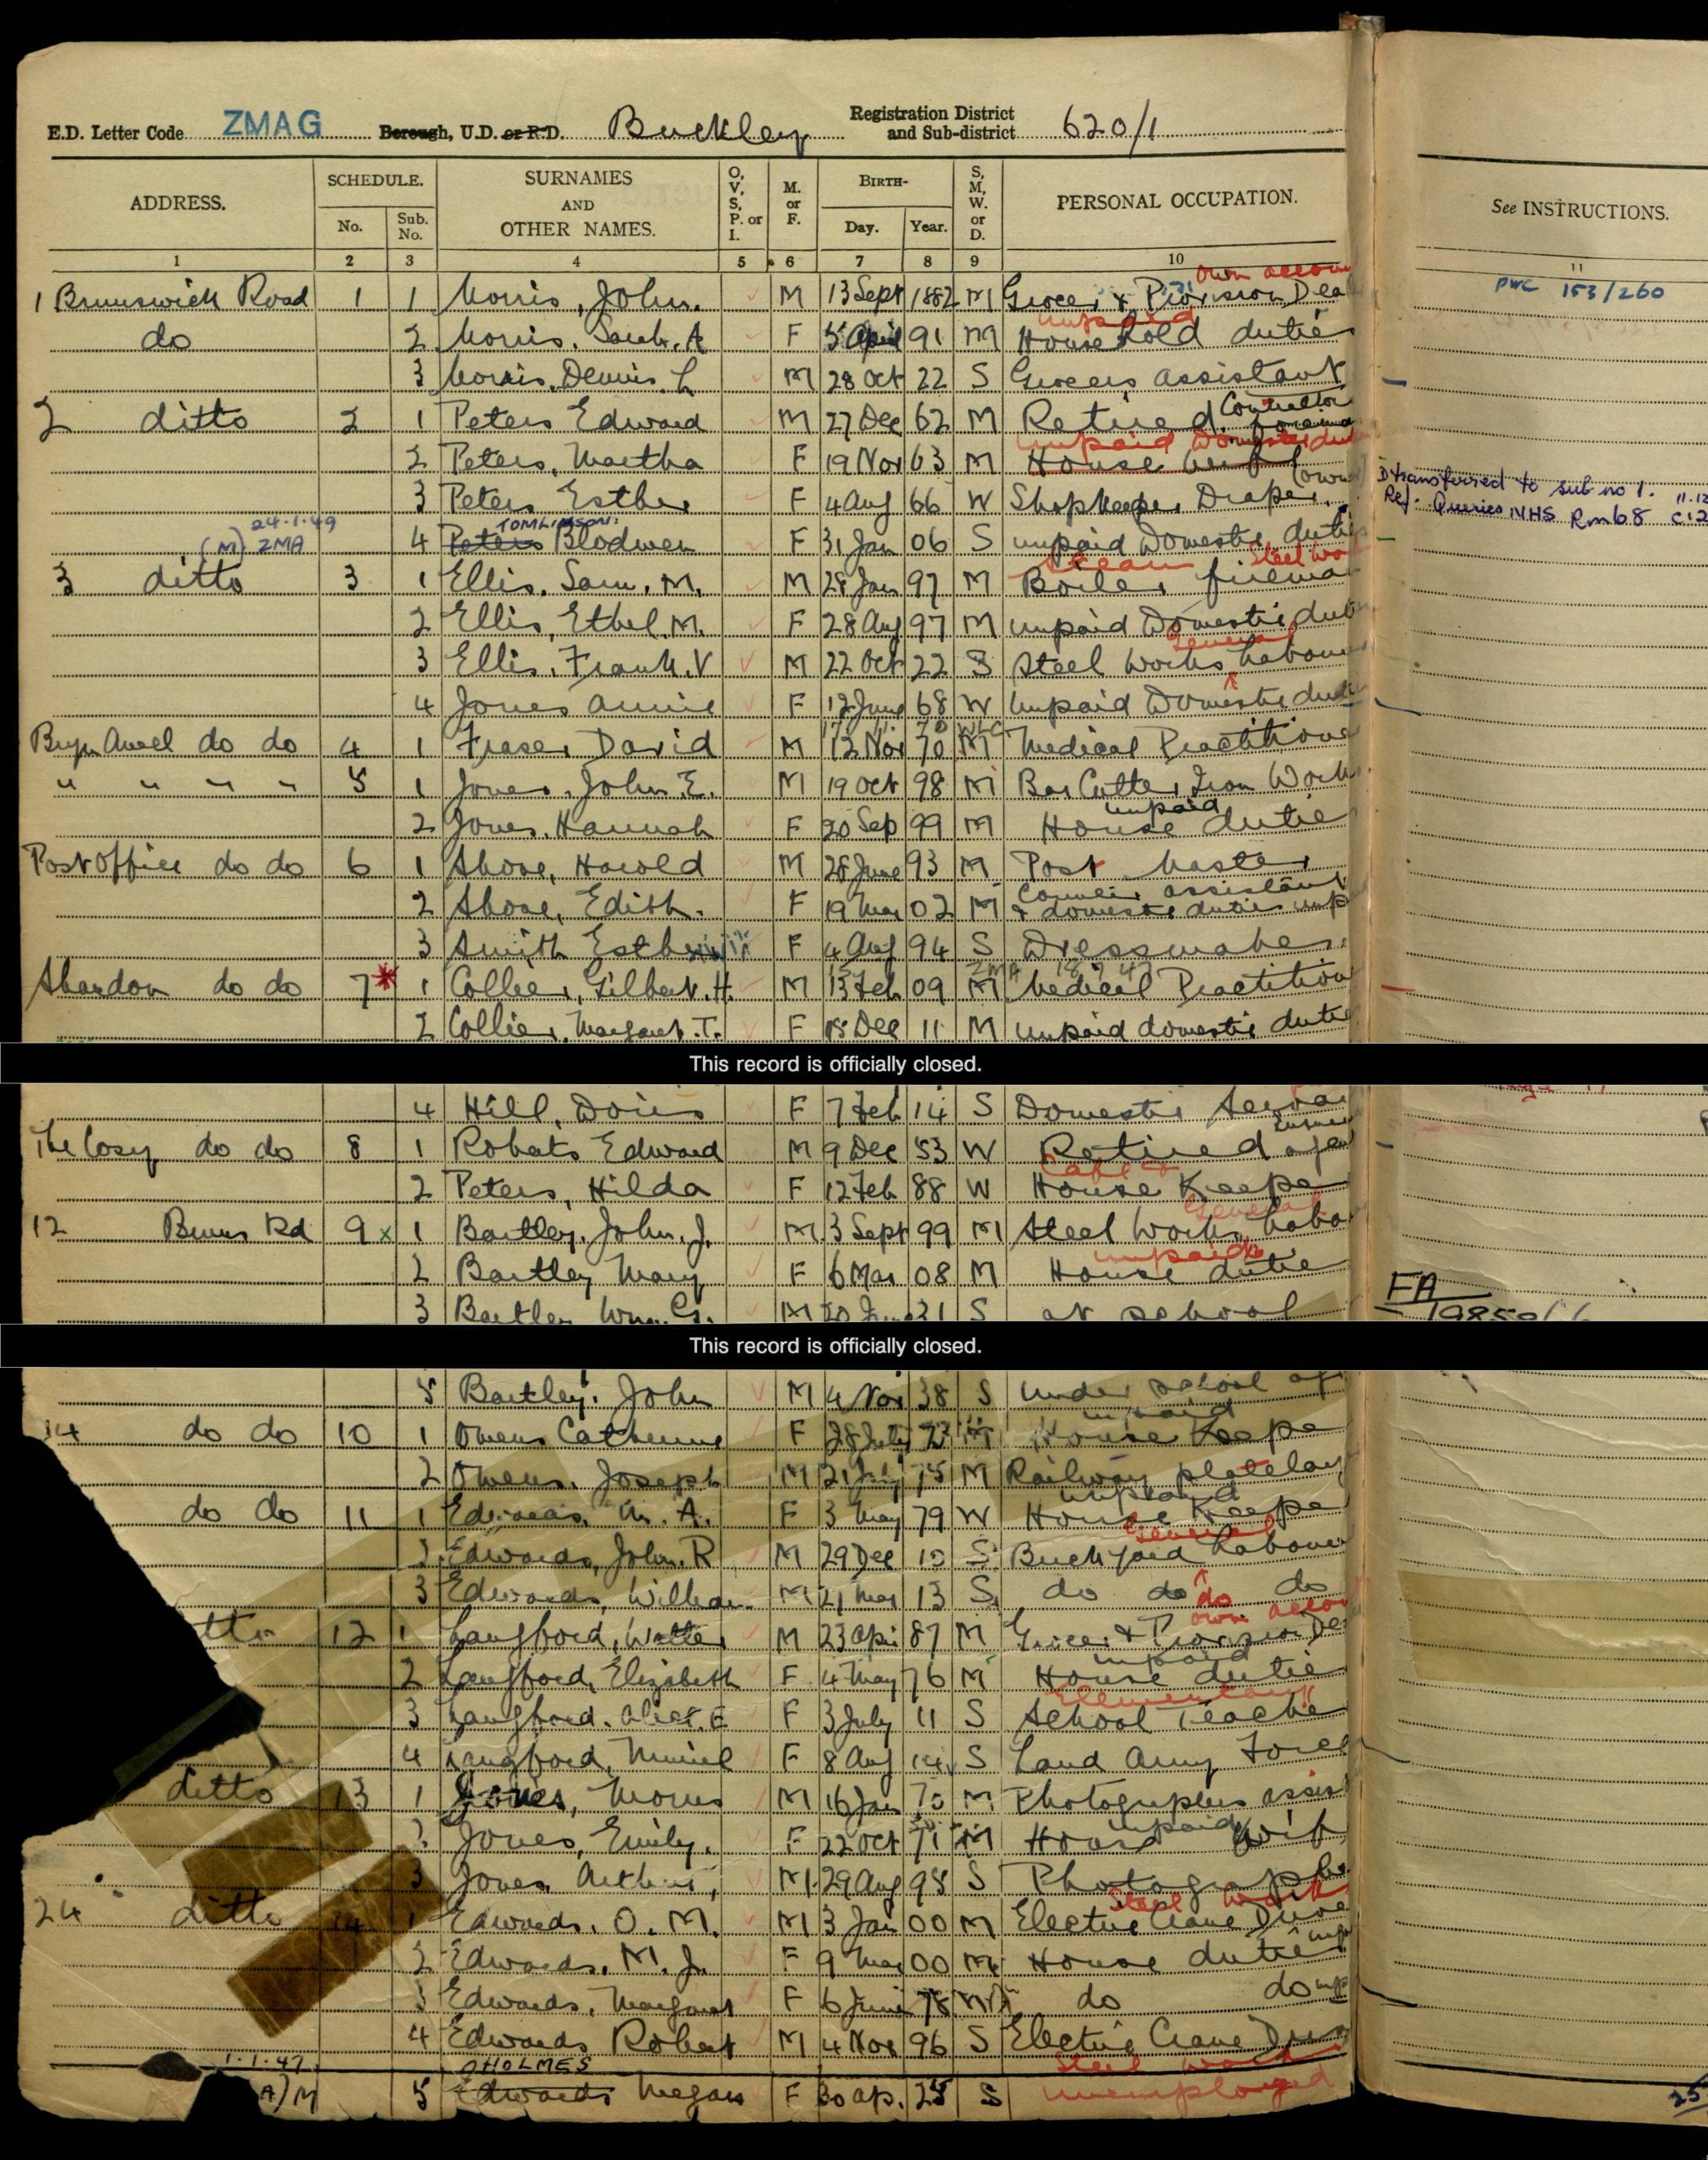 E.D. Letter Code ZMAG Borough, U.D. or R.D. Buckley Registration District and Sub-district 620/1
ADDRESS. SCHEDULE. No. Sub. No. SURNAMES AND OTHER NAMES. O, V, S, P. or I. M. or F. BIRTH- Day. Year. S, M, W. or D. PERSONAL OCCUPATION. See INSTRUCTIONS.
1 2 3 4 5 6 7 8 9 10 11
own accou
PWC 153/260
1 Brunswick Road 1 1 Morris, John. M 13 Sept 1882 M Grocer & Provision Dea
unpaid
do 2 Morris, Sarah. A F 5 April 91 M Household duties
3 Morris, Dennis. L M 28 Oct 22 S Grocers assistant
2 ditto 2 1 Peters Edward M 27 Dec 62 M Retired Contractor
unpaid Domestic dut
2 Peters, Martha F 19 Nov 63 M House Wife
3 Peters Esther F 4 Aug 66 W Shopkeeper, Draper (own
transferred to sub no 1. 11.12
Ref. Queries NHS Rm 68
24.1.49 TOMLINSON
(M) ZMA 4 Peters Blodwen F 31 Jan 06 S unpaid Domestic duties
Steam Steel wo
3 ditto 3 1 Ellis, Sam. M. M 28 Jan 97 M Boiler fireman
2 Ellis, Ethel. M. F 28 Aug 97 M unpaid Domestic duti
General
3 Ellis, Frank. V M 22 Oct 22 S Steel Works labour
4 Jones Annie F 12 June 68 W Unpaid Domestic duti
Bryn Awel do do 4 1 Fraser David M 12 Nov 70 M Medical Practitione
" " " " 5 1 Jones, John. E. M 19 Oct 98 M Bar Cutter Iron Works
unpaid
2 Jones, Hannah F 20 Sep 99 M House duties
Post Office do do 6 1 Shone, Harold M 28 June 93 M Post Master
Counter assistant
2 Shone, Edith. F 19 Mar 02 M & domestic duties unp
3 Smith Esther F 4 Aug 94 S Dressmaker
Abandon do do 7 1 Collier, Gilbert. H. M 13 Feb 09 M Medical Practition
2 Collier, Margaret. T. F 18 Dec 11 M unpaid domestic duties
This record is officially closed.
4 Hill, Doris F 7 Feb 14 S Domestic Serva
The Cosy do do 8 1 Roberts Edward M 9 Dec 53 W Retired agent
2 Peters, Hilda F 12 Feb 88 W House Keeper
General
12 Bruns Rd 9 x 1 Bartley, John. J. M 3 Sept 99 M Steel Works labo
unpaid
2 Bartley Mary F 6 Mar 08 M House duties
FA
3 Bartley Wm. G. M 20 June 31 S at school
This record is officially closed.
5 Bartley. John M 4 Nov 38 S under school ag
unpaid
14 do do 10 1 Owens Catherine F 28 July 73 M House Keeper
2 Owens, Joseph M 21 July 75 M Railway platelay
unpaid
do do 11 1 Edwards, M. A. F 3 May 79 W House Keeper
General
2 Edwards, John. R M 29 Dec 10 S Brickyard Labour
3 Edwards, William M 21 Mar 13 S do do do do
own accou
12 1 Langford, Walter M 23 Apr 87 M Grocer & Provision Dea
unpaid
2 Langford, Elizabeth F 4 May 76 M House duties
Elementary
3 Langford. Alice. E F 3 July 11 S School Teacher
4 Langford, Muriel F 8 Aug 14 S Land Army Force
ditto 13 1 Jones, Morris M 16 Jan 70 M Photographers assis
unpaid
2 Jones, Emily. F 22 Oct 71 M House wife
3 Jones Arthur, M 29 Aug 98 S Photographer
Steel Works
24 ditto 14 1 Edwards. O. M. M 3 Jan 00 M Electric Crane Drive
2 Edwards. M. J. F 9 Mar 00 M House duties unp
3 Edwards, Margaret F 6 June 78 W do do unp
4 Edwards Robert M 4 Nov 96 S Electric Crane Driv
1.1.47 HOLMES Steel works
A)M 5 Edwards Megan F 30 ap. 25 S unemployed